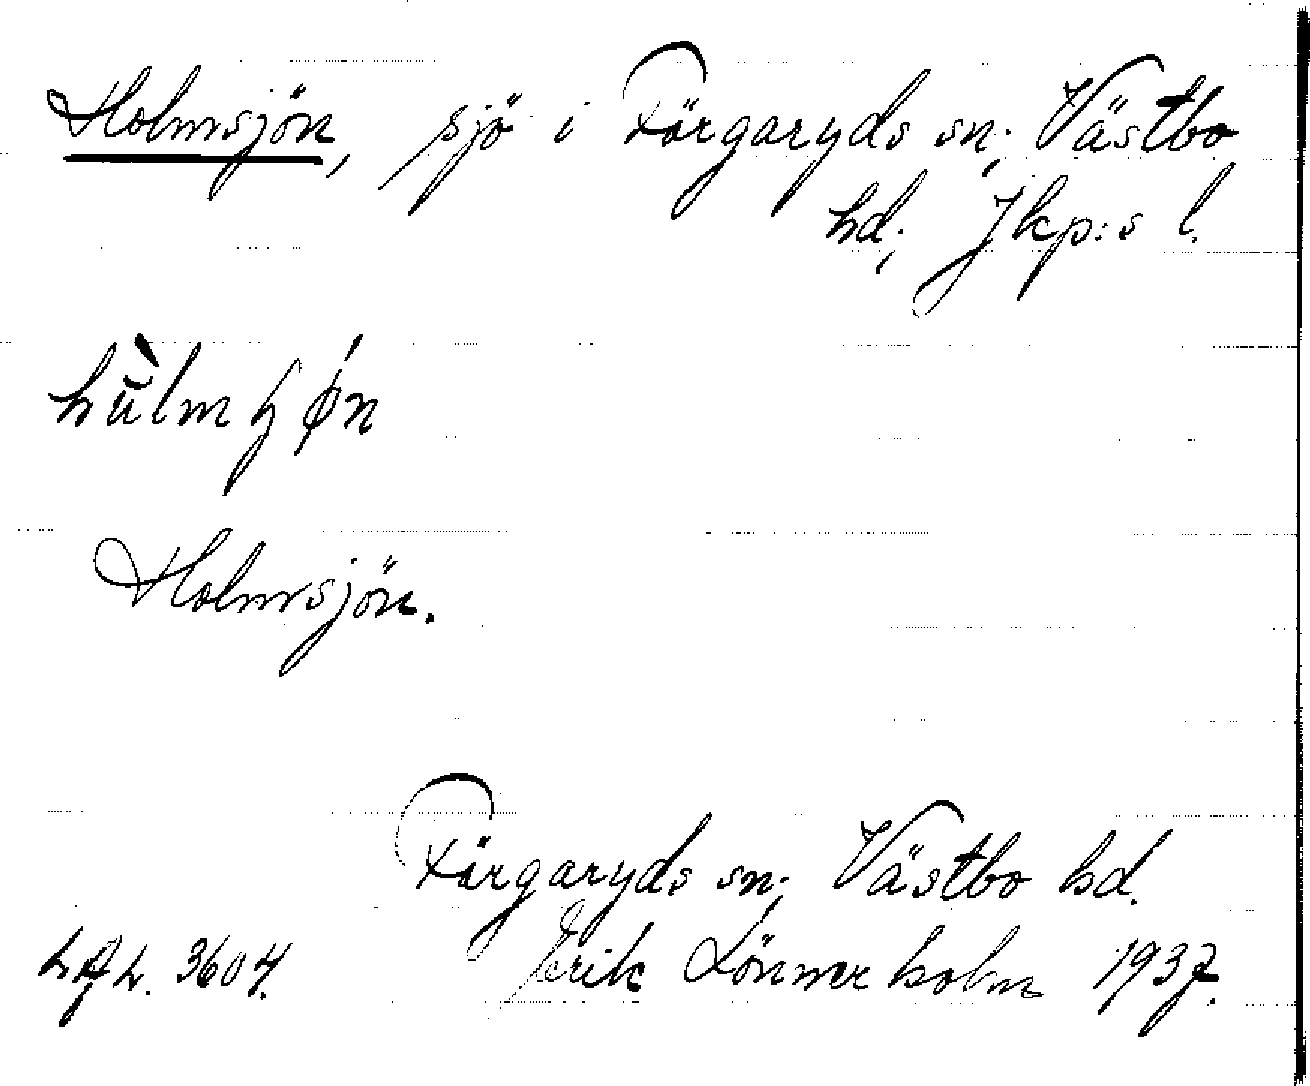 Holmsjön, sjö i Färgaryds sn; Västbo
hd; Jkp:s l.
Holmsjön.
Färgaryds sn; Västbo hd.
3604. Erik Lönnerholm 1937.